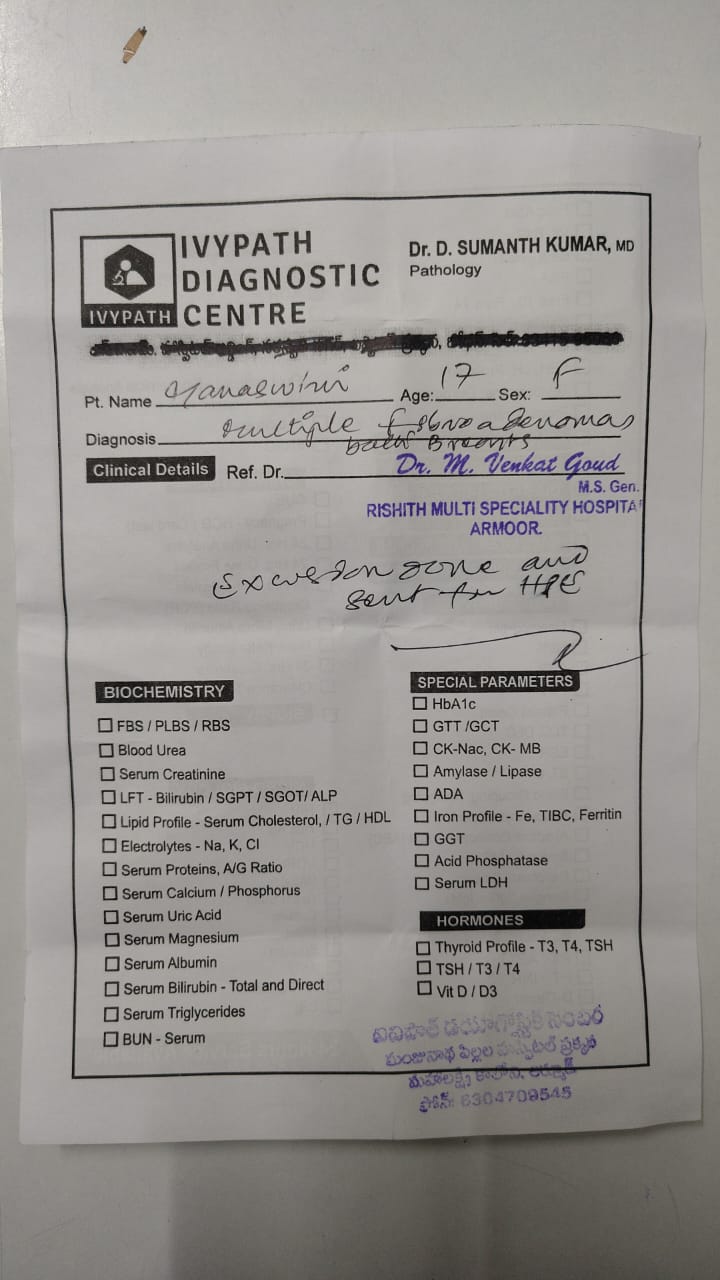 IVYPATH
DIAGNOSTIC
CENTRE
IVYPATH
Dr. D. SUMANTH KUMAR, MD
Pathology
Pt. Name Manaswini Age: 17 Sex: F
Diagnosis multiple fibroadenomas
both Breasts
Clinical Details Ref. Dr. Dr. M. Venkat Goud
M.S. Gen.
RISHITH MULTI SPECIALITY HOSPITA
ARMOOR.
Excision done and
sent for HPE
BIOCHEMISTRY
FBS / PLBS / RBS
Blood Urea
Serum Creatinine
LFT - Bilirubin / SGPT / SGOT/ ALP
Lipid Profile - Serum Cholesterol, / TG / HDL
Electrolytes - Na, K, Cl
Serum Proteins, A/G Ratio
Serum Calcium / Phosphorus
Serum Uric Acid
Serum Magnesium
Serum Albumin
Serum Bilirubin - Total and Direct
Serum Triglycerides
BUN - Serum
SPECIAL PARAMETERS
HbA1c
GTT /GCT
CK-Nac, CK- MB
Amylase / Lipase
ADA
Iron Profile - Fe, TIBC, Ferritin
GGT
Acid Phosphatase
Serum LDH
HORMONES
Thyroid Profile - T3, T4, TSH
TSH / T3 / T4
Vit D / D3
ఐవిపాత్ డయాగ్నొస్టిక్ సెంటర్
మంజునాథ పిల్లల హాస్పిటల్ ప్రక్కన
మహాలక్ష్మి కాలోని,
ఫోన్: 6304709545